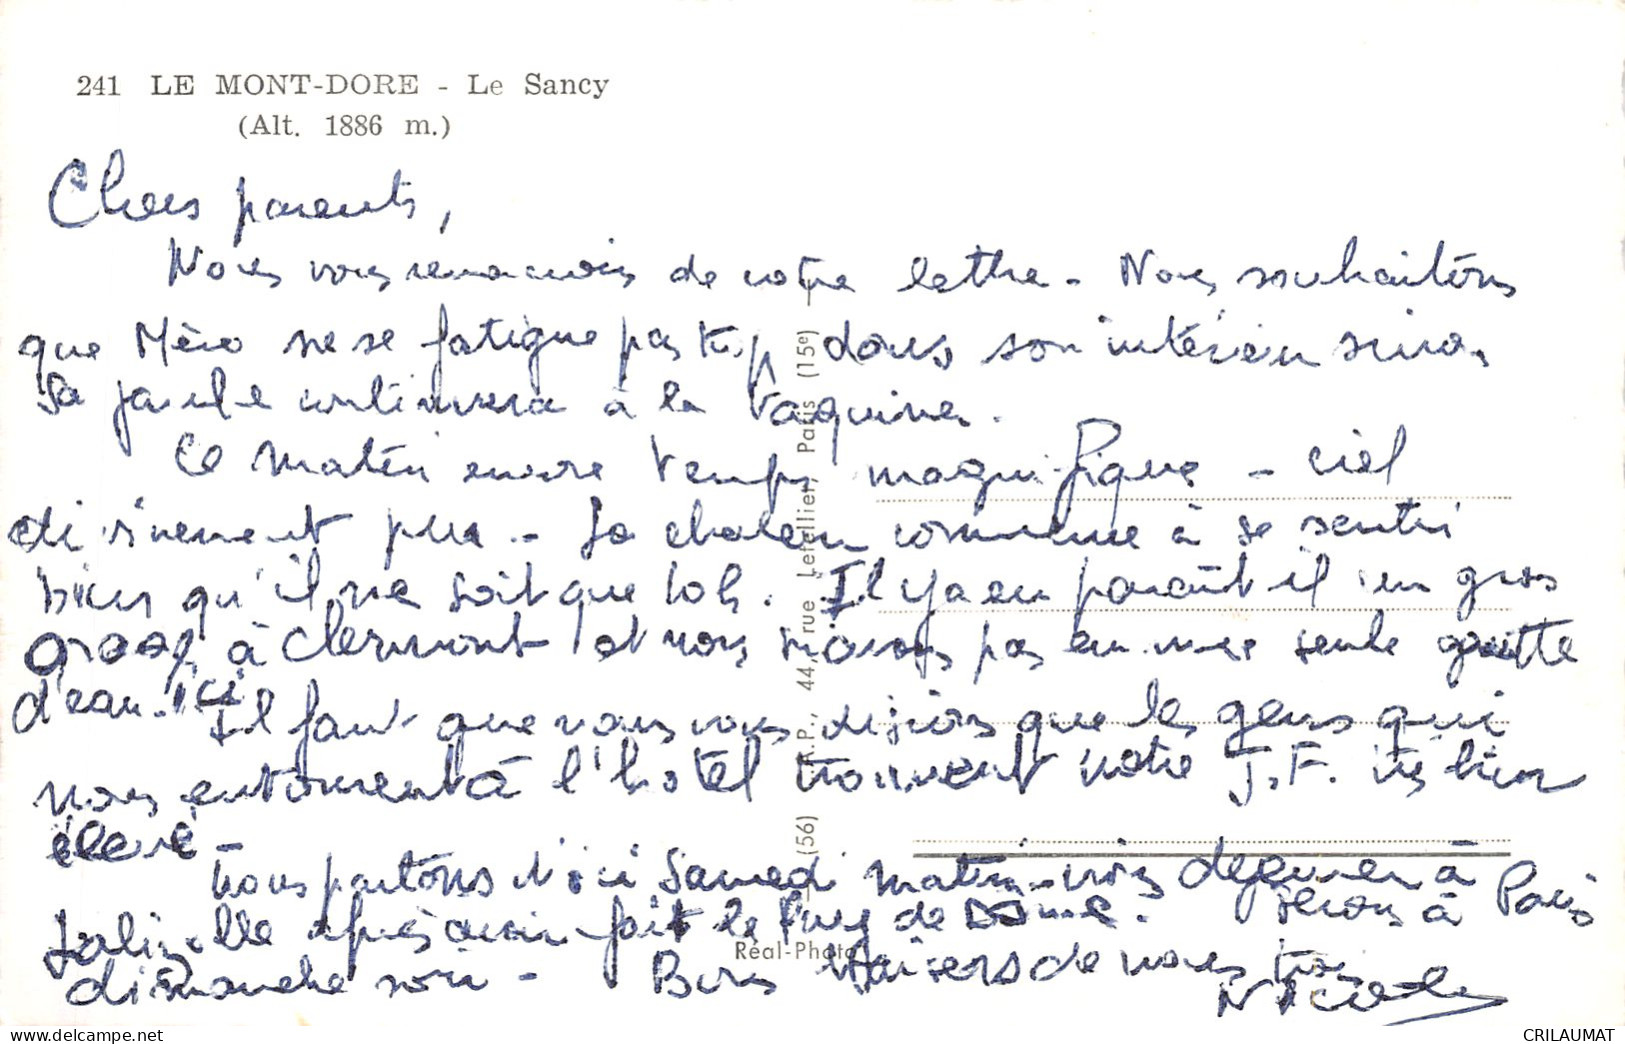 241 LE MONT-DORE - Le Sancy
(Alt. 1886 m.)
Chers parents,
Nous vous remercions de votre lettre - Nous souhaitons
que Mère ne se fatigue pas trop dans son intérieur sinon
sa continuera à la taquiner.
Ce matin encore temps magnifique - ciel
divinement pur - La chaleur commence à se sentir
bien qu'il ne soit que 10h. Il y a eu paraît il un gros
orage à Clermont et nous n'avons pas eu une seule goutte
d'eau ici
Il faut que nous vous disions que les gens qui
nous entourent à l'hôtel trouvent notre J.F. très bien
élevé -
Nous partons d'ici Samedi matin - irons déjeuner à
après avoir fait le Puy de Dôme. Serons à Paris
dimanche soir - Bons baisers de nous trois
Nicole
J.A.P., 44, rue Letellier, Paris (15e)
(56)
Réal-Photo
CRILAUMAT